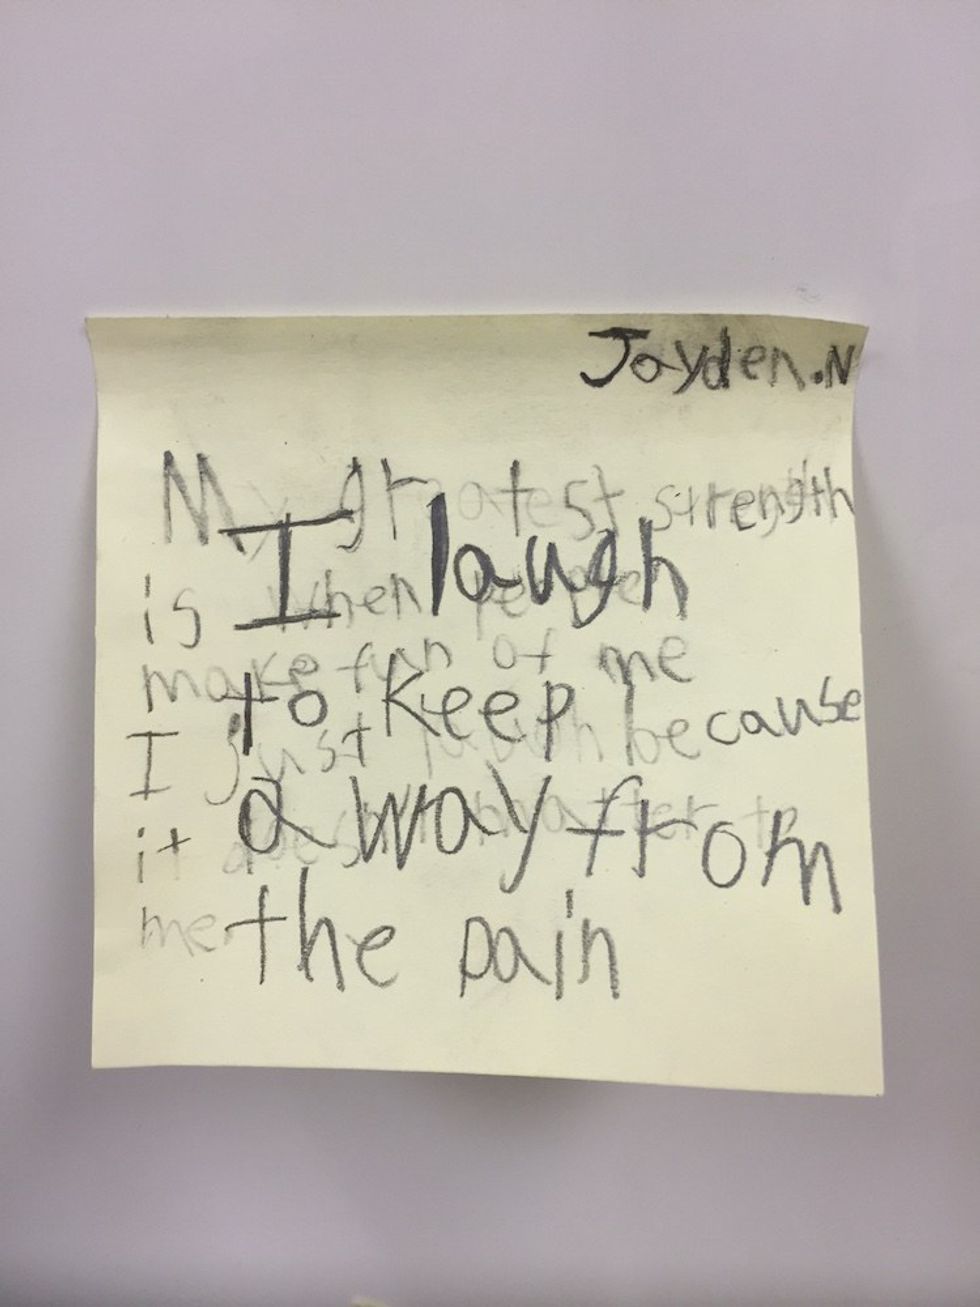 Jayden.N
My greatest strength
is when people
make fun of me
I just laugh because
it doesn't matter to
me
I laugh
to keep
away from
the pain